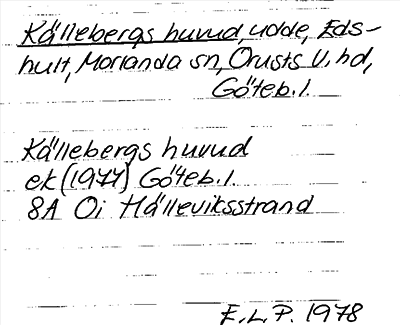 Källebergs huvud, udde, Eds-
hult, Morlanda sn, Orusts V. hd,
Göteb. l.
Källebergs huvud
ek (1977) Göteb. l.
8A Oi Hälleviksstrand
E.L.P. 1978